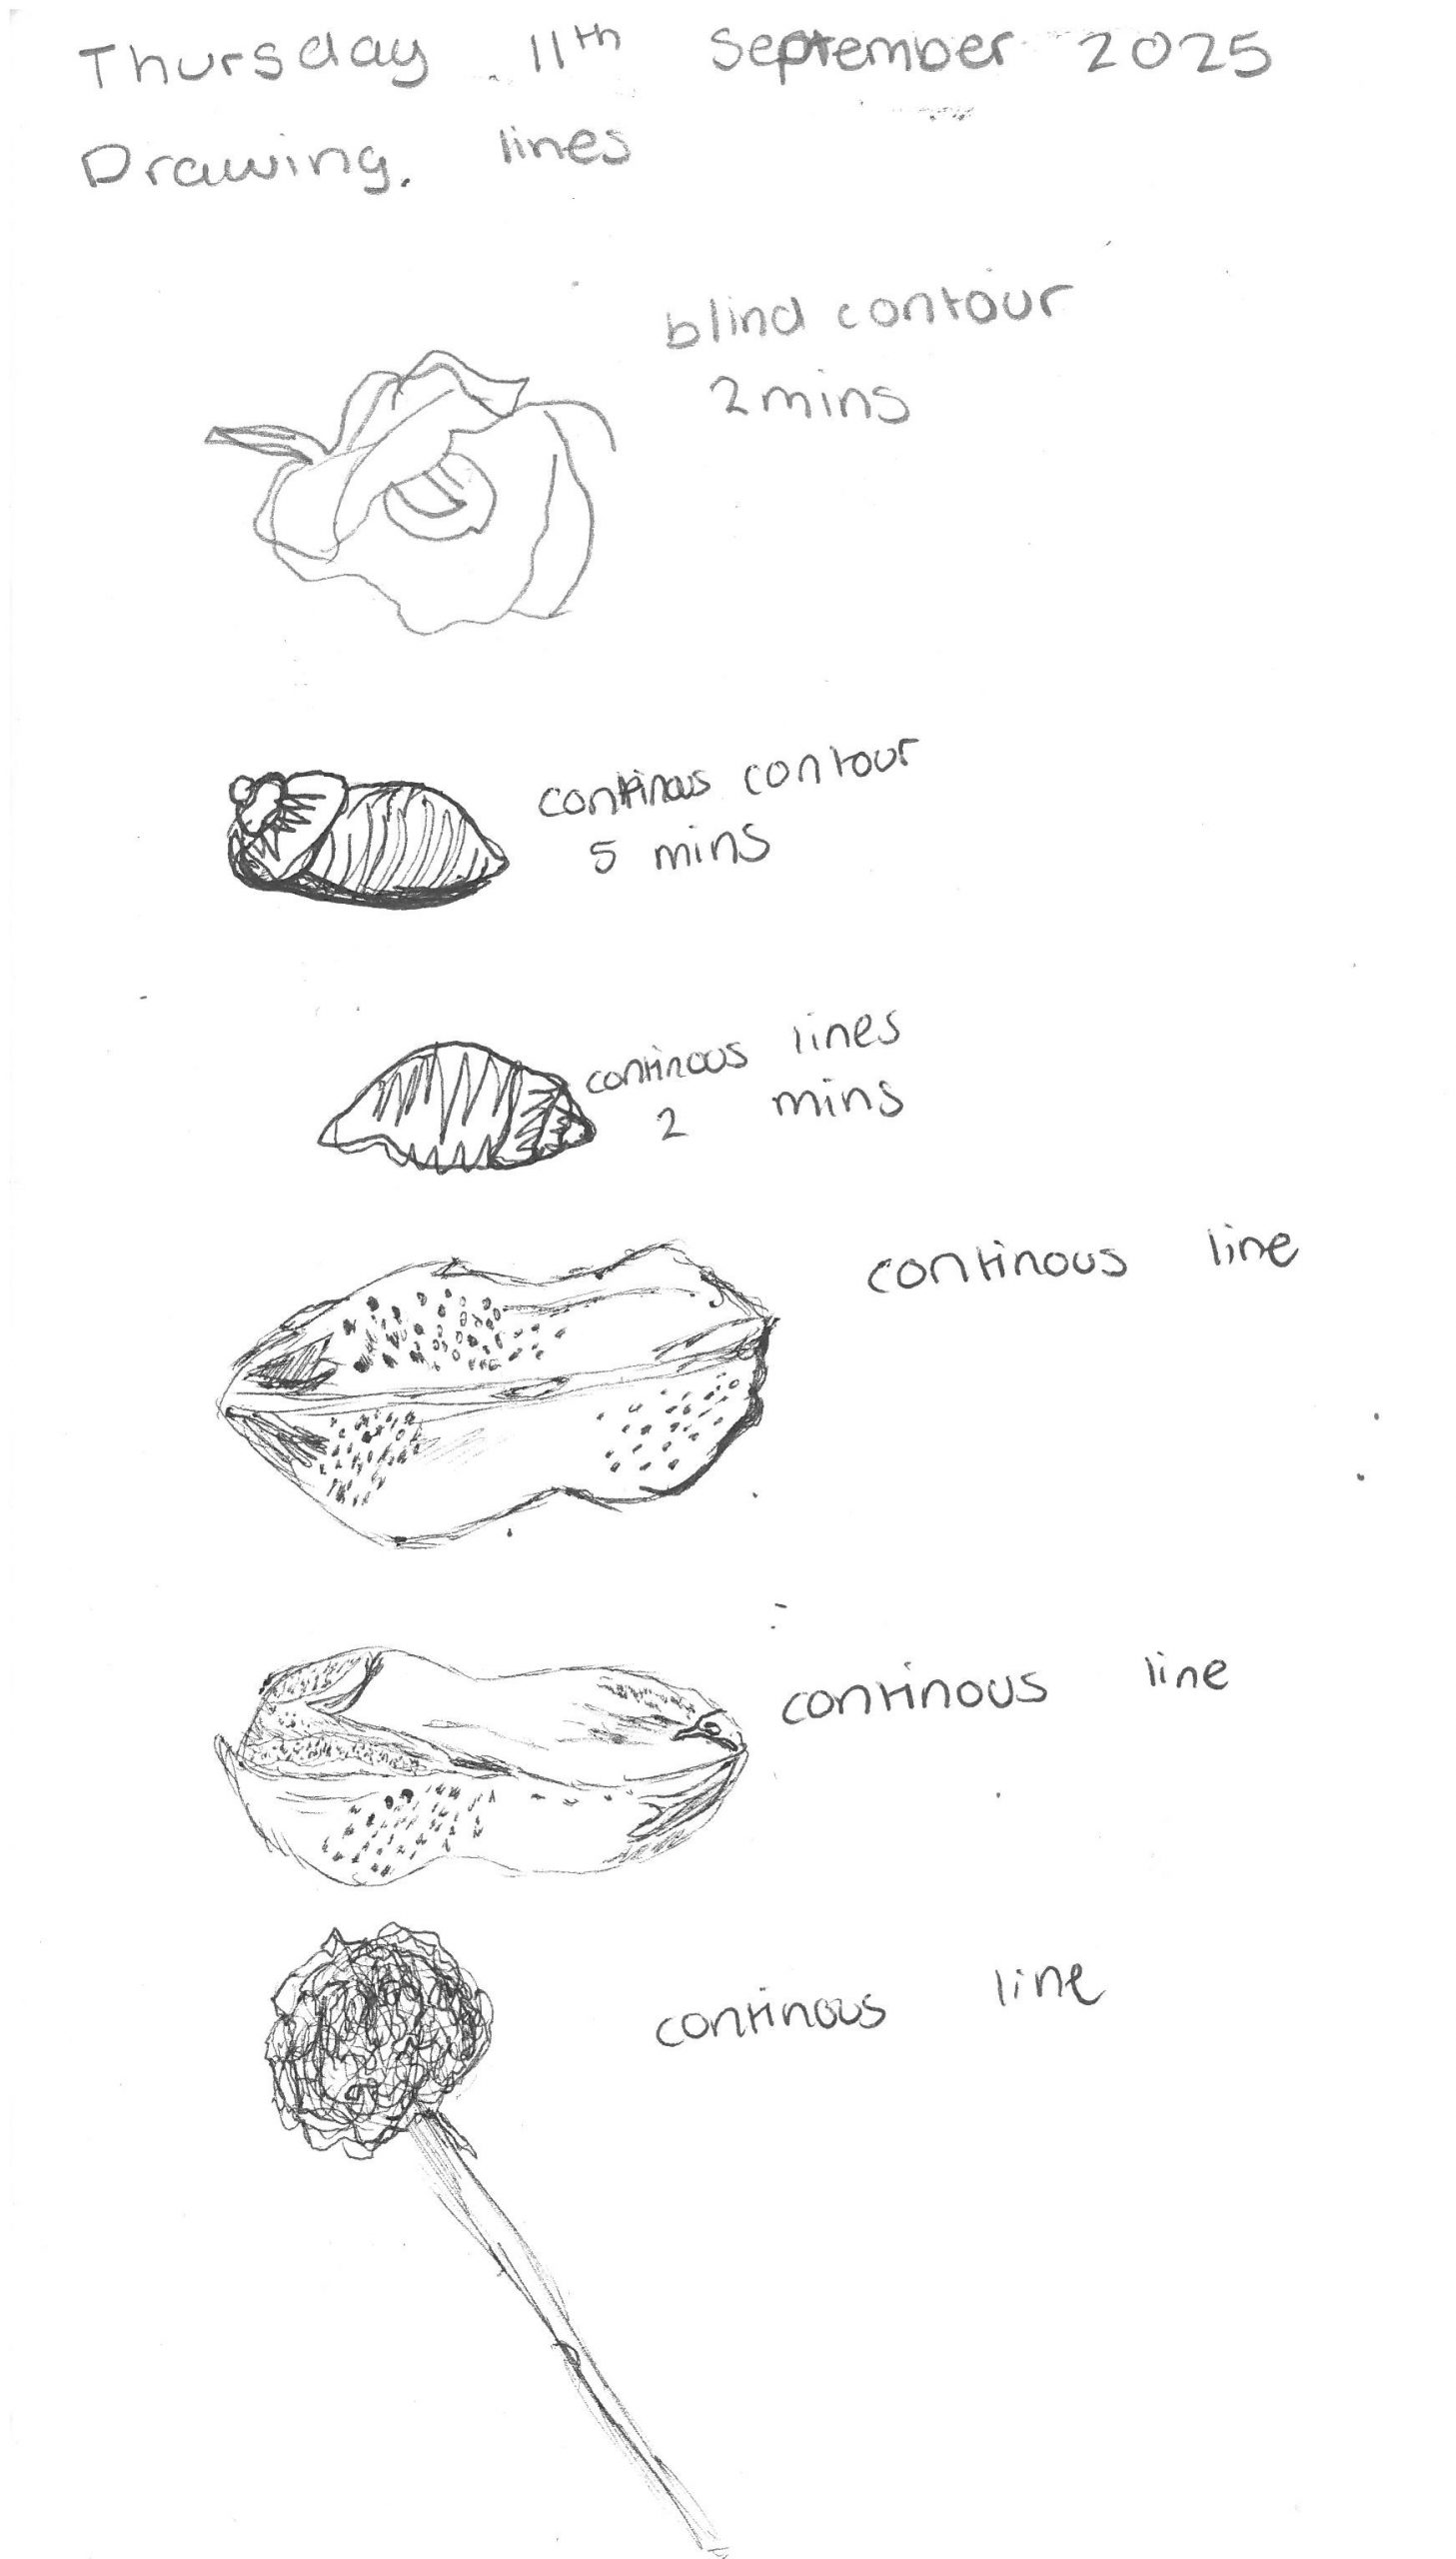 Thursday 11th September 2025
Drawing. lines
blind contour
2 mins
continous contour
5 mins
continous lines
2 mins
continous line
continous line
continous line